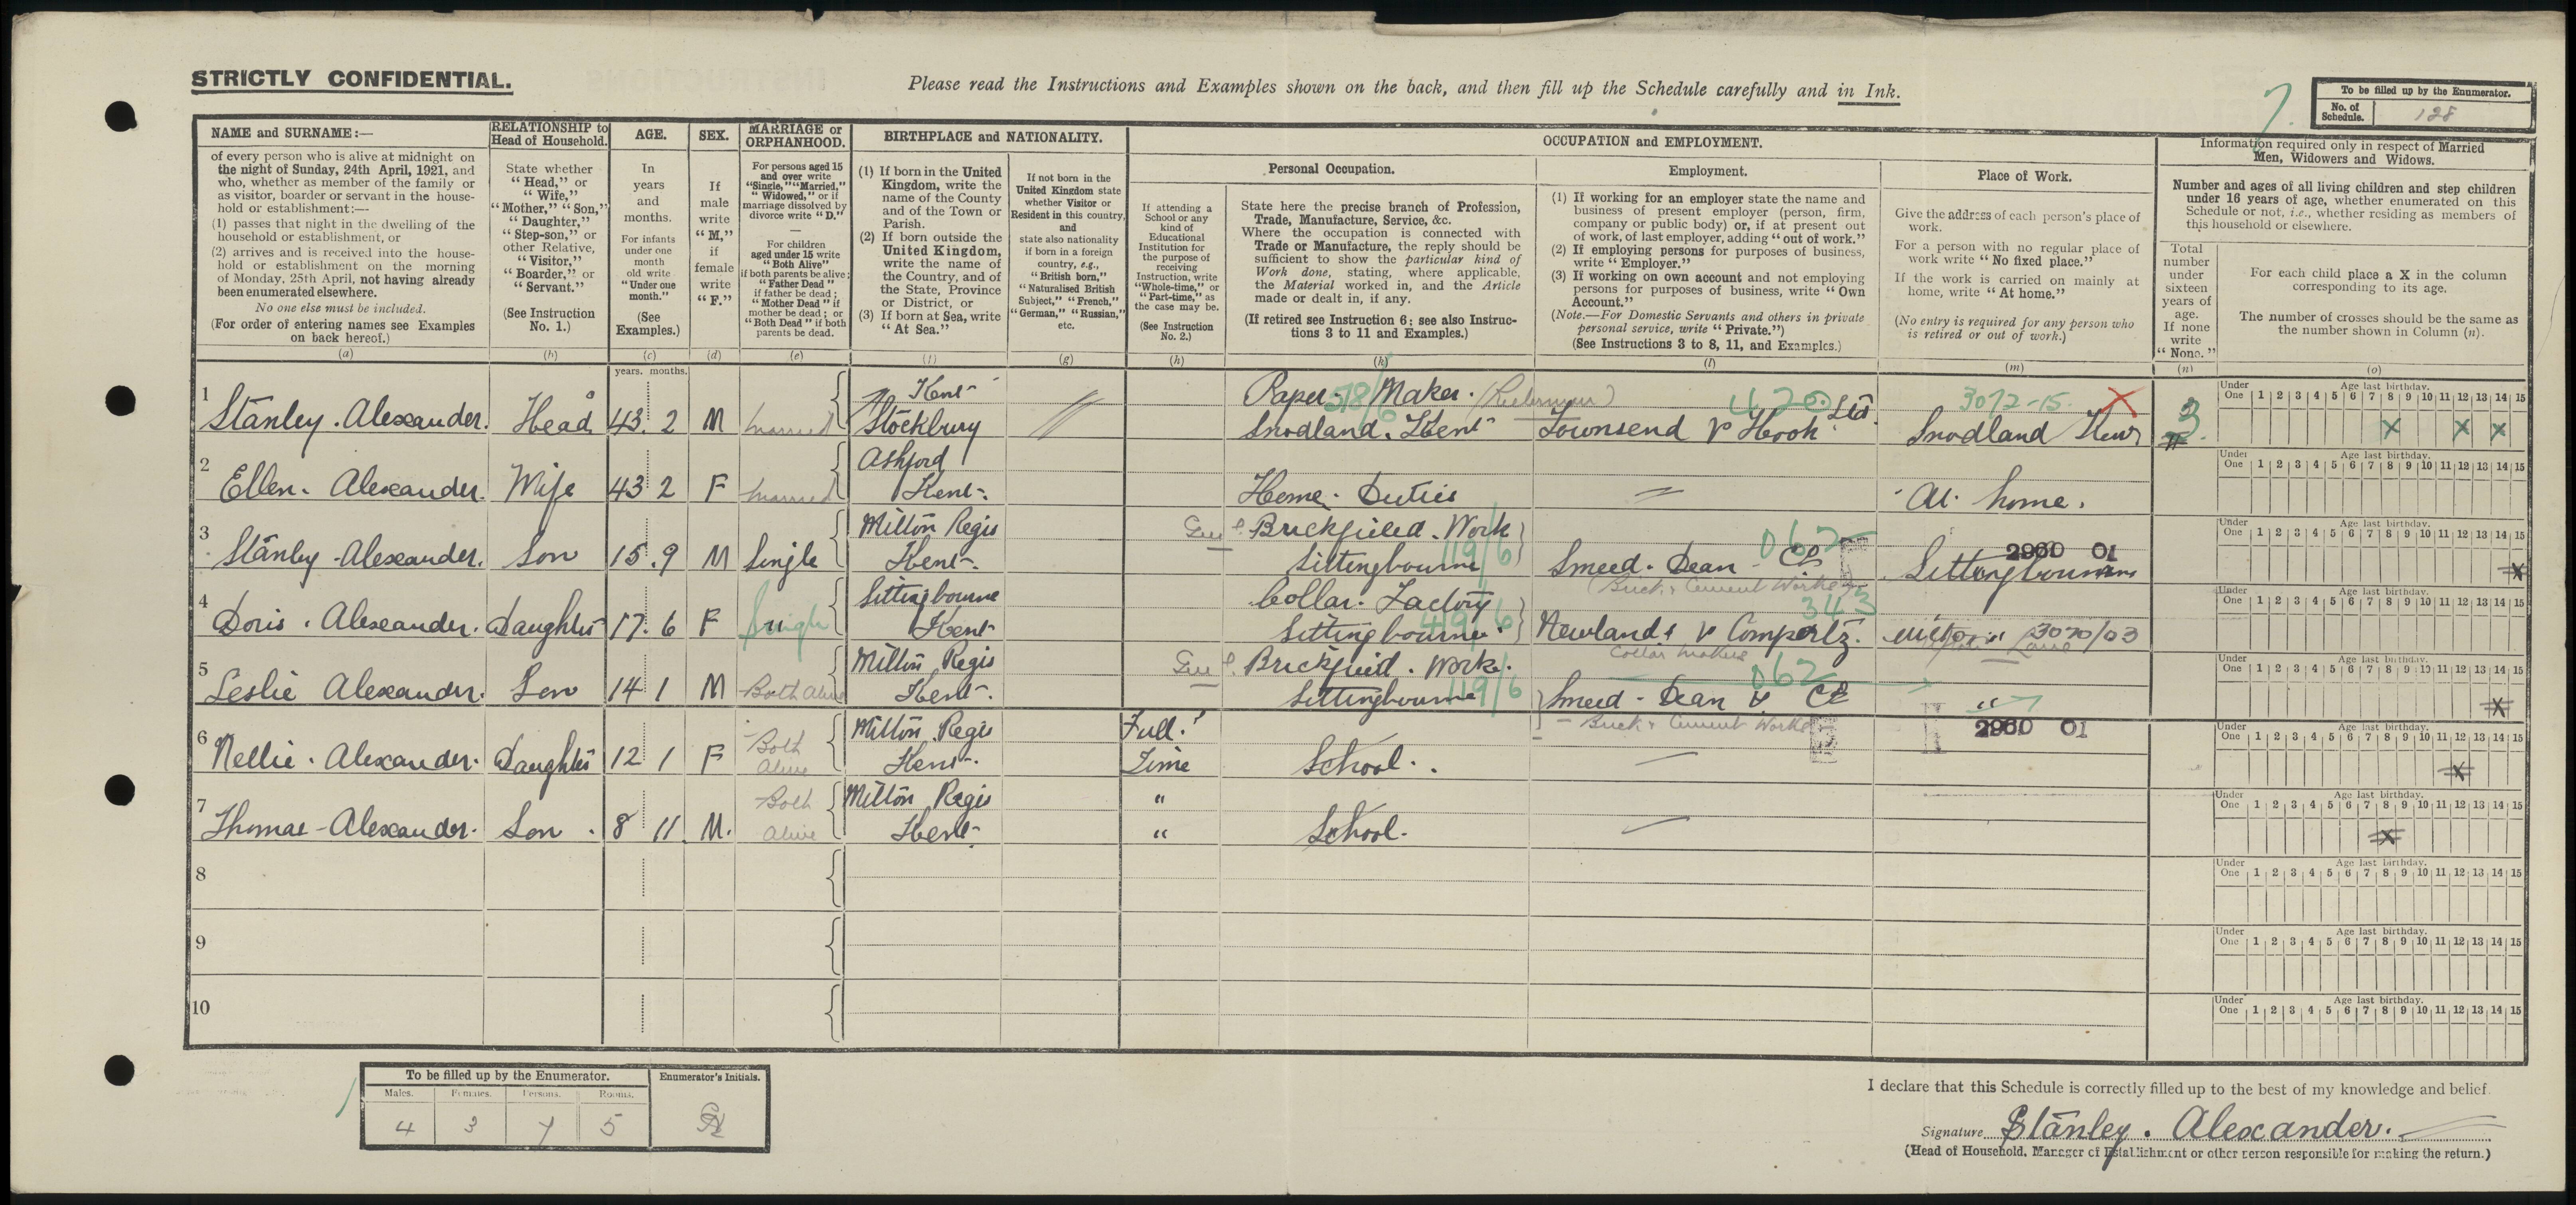 STRICTLY CONFIDENTIAL.
Please read the Instructions and Examples shown on the back, and then fill up the Schedule carefully and in Ink.
7.
To be filled up by the Enumerator.
No. of Schedule. 128
NAME and SURNAME:—
of every person who is alive at midnight on
the night of Sunday, 24th April, 1921, and
who, whether as member of the family or
as visitor, boarder or servant in the house-
hold or establishment:—
(1) passes that night in the dwelling of the
household or establishment, or
(2) arrives and is received into the house-
hold or establishment on the morning
of Monday, 25th April, not having already
been enumerated elsewhere.
No one else must be included.
(For order of entering names see Examples
on back hereof.)
(a)
RELATIONSHIP to
Head of Household.
State whether
“Head,” or
“Wife,”
“Mother,” “Son,”
“Daughter,”
“Step-son,” or
other Relative,
“Visitor,”
“Boarder,” or
“Servant.”
(See Instruction
No. 1.)
(b)
AGE.
In
years
and
months.
For infants
under one
month
old write
“Under one
month.”
(See
Examples.)
(c)
SEX.
If
male
write
“M,”
if
female
write
“F.”
(d)
MARRIAGE or
ORPHANHOOD.
For persons aged 15
and over write
“Single,” “Married,”
“Widowed,” or if
marriage dissolved by
divorce write “D.”
—
For children
aged under 15 write
“Both Alive”
if both parents be alive;
“Father Dead”
if father be dead;
“Mother Dead” if
mother be dead; or
“Both Dead” if both
parents be dead.
(e)
BIRTHPLACE and NATIONALITY.
(1) If born in the United
Kingdom, write the
name of the County
and of the Town or
Parish.
(2) If born outside the
United Kingdom,
write the name of
the Country, and of
the State, Province
or District, or
(3) If born at Sea, write
“At Sea.”
(f)
If not born in the
United Kingdom state
whether Visitor or
Resident in this country,
and
state also nationality
if born in a foreign
country, e.g.,
“British born,”
“Naturalised British
Subject,” “French,”
“German,” “Russian,”
etc.
(g)
OCCUPATION and EMPLOYMENT.
If attending a
School or any
kind of
Educational
Institution for
the purpose of
receiving
Instruction, write
“Whole-time,” or
“Part-time,” as
the case may be.
(See Instruction
No. 2.)
(h)
Personal Occupation.
State here the precise branch of Profession,
Trade, Manufacture, Service, &c.
Where the occupation is connected with
Trade or Manufacture, the reply should be
sufficient to show the particular kind of
Work done, stating, where applicable,
the Material worked in, and the Article
made or dealt in, if any.
(If retired see Instruction 6; see also Instruc-
tions 3 to 11 and Examples.)
(k)
Employment.
(1) If working for an employer state the name and
business of present employer (person, firm,
company or public body) or, if at present out
of work, of last employer, adding “out of work.”
(2) If employing persons for purposes of business,
write “Employer.”
(3) If working on own account and not employing
persons for purposes of business, write “Own
Account.”
(Note.—For Domestic Servants and others in private
personal service, write “Private.”)
(See Instructions 3 to 8, 11, and Examples.)
(l)
Place of Work.
Give the address of each person's place of
work.
For a person with no regular place of
work write “No fixed place.”
If the work is carried on mainly at
home, write “At home.”
(No entry is required for any person who
is retired or out of work.)
(m)
Information required only in respect of Married
Men, Widowers and Widows.
Number and ages of all living children and step children
under 16 years of age, whether enumerated on this
Schedule or not, i.e., whether residing as members of
this household or elsewhere.
Total
number
under
sixteen
years of
age.
If none
write
“None.”
(n)
For each child place a X in the column
corresponding to its age.
The number of crosses should be the same as
the number shown in Column (n).
(o)
years. months.
Under One Age last birthday. 1 2 3 4 5 6 7 8 9 10 11 12 13 14 15
1 Stanley. Alexander. Head 43. 2 M Married Kent Stockbury Paper. Maker. 578/6 Snodland. Kent Townsend & Hook Ltd. 420 3072-15 Snodland Kent 3 X X X
Under One Age last birthday. 1 2 3 4 5 6 7 8 9 10 11 12 13 14 15
2 Ellen. Alexander. Wife 43 2 F Married Ashford Kent. Home. Duties At. home.
Under One Age last birthday. 1 2 3 4 5 6 7 8 9 10 11 12 13 14 15
3 Stanley Alexander. Son 15. 9 M Single Milton Regis Kent. Brickfield. Work Sittingbourne 119/6 Smeed. Dean Co 062 (Brick & Cement Works) Sittingbourne 2960 01 X
Under One Age last birthday. 1 2 3 4 5 6 7 8 9 10 11 12 13 14 15
4 Doris. Alexander. Daughter 17. 6 F Single Sittingbourne Kent Collar. Factory Sittingbourne. 419/6 Newlands & Compertz. 343 Collar makers 3070/03
Under One Age last birthday. 1 2 3 4 5 6 7 8 9 10 11 12 13 14 15
5 Leslie Alexander. Son 14 1 M Both Alive Milton Regis Kent. Brickfield. Work. Sittingbourne 119/6 Smeed. Dean & Co 062 Brick & Cement Works “ 2960 01 X
Under One Age last birthday. 1 2 3 4 5 6 7 8 9 10 11 12 13 14 15
6 Nellie. Alexander. Daughter 12 1 F Both Alive Milton Regis Kent. Full. Time School. X
Under One Age last birthday. 1 2 3 4 5 6 7 8 9 10 11 12 13 14 15
7 Thomas Alexander. Son. 8 11 M. Both Alive Milton Regis Kent “ “ School. X
Under One Age last birthday. 1 2 3 4 5 6 7 8 9 10 11 12 13 14 15
8
Under One Age last birthday. 1 2 3 4 5 6 7 8 9 10 11 12 13 14 15
9
Under One Age last birthday. 1 2 3 4 5 6 7 8 9 10 11 12 13 14 15
10
To be filled up by the Enumerator.
Males. Females. Persons. Rooms.
4 3 7 5
Enumerator's Initials.
I declare that this Schedule is correctly filled up to the best of my knowledge and belief.
Signature Stanley. Alexander.
(Head of Household, Manager of Establishment or other person responsible for making the return.)